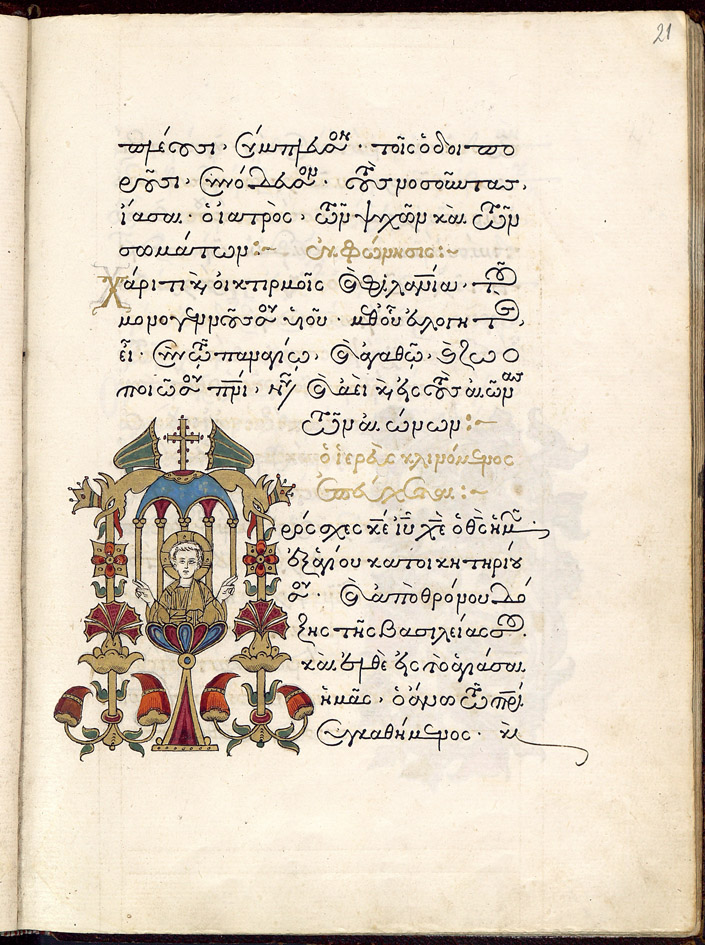 21
πλέουσι, σύμπλευσον· τοῖς ὁδοιπο
ροῦσι, συνόδευσον· τοὺς νοσοῦντας,
ἴασαι. ὁ ἰατρὸς, τῶν ψυχῶν καὶ τῶν
σωμάτων:~ ἐκφώνησις:~
Χάριτι κ̀, οἰκτιρμοῖς καὶ φιλανίαι· τοῦ
μονογεννοῦς σου υἱοῦ· μεθ' οὗ εὐλογητὸς,
εἶ· σὺν τῷ παναγίῳ, καὶ ἀγαθῷ, καὶ ζωο
ποιῷ σου πνι̅, νῦν καὶ ἀεὶ κ̀, εἰς τοὺς αἰῶνας
τῶν αἰώνων:~
ὁ ἱερεὺς κλινόμενος
ἐπεύχεται:~
Πρόσχες κε̅ ιυ̅ χε̅ ὁ θς̅ ἡμῶν·
ἐξ ἁγίου κατοικητηρίου
σου· καὶ ἀπὸ θρόνου δό
ξης τῆς βασιλείας σου.
καὶ ἐλθὲ εἰς τὸ ἁγιάσαι
ἡμᾶς, ὁ ἄνω τῷ πρι̅
συγκαθήμενος· κ̀